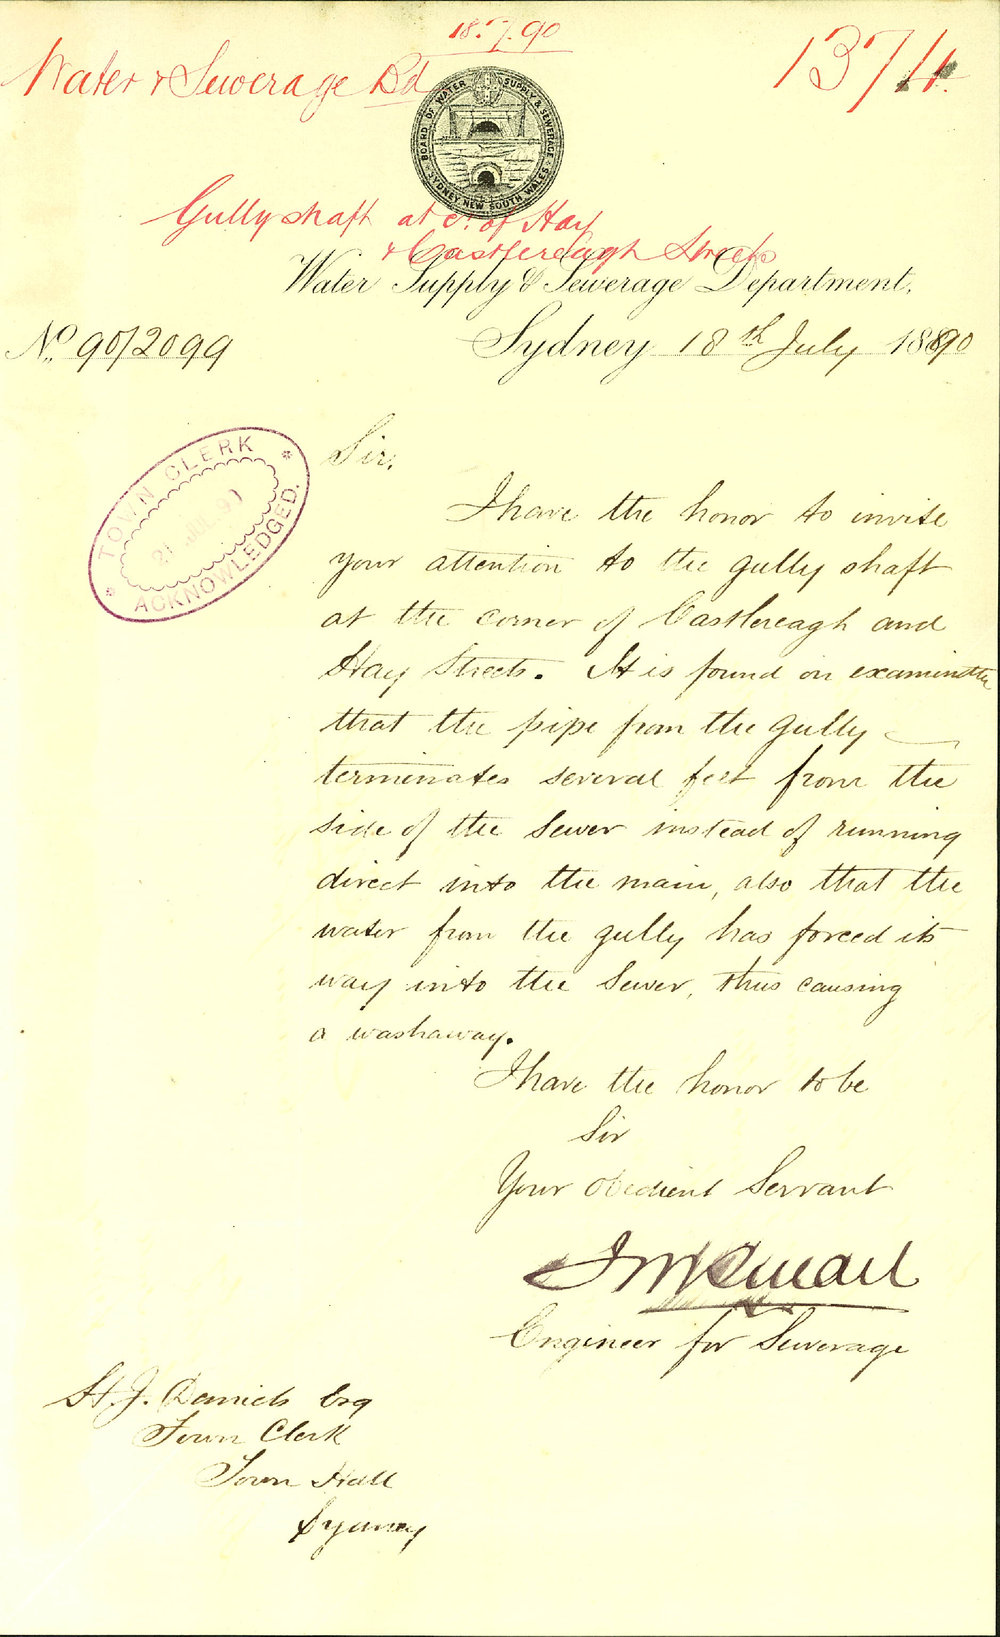 18.7.90
Water & Sewerage Bd
1374
BOARD OF WATER SUPPLY & SEWERAGE
SYDNEY NEW SOUTH WALES
Gully shaft at Cr. of Hay
& Castlereagh Streets
Water Supply & Sewerage Department.
No. 90/2099
Sydney 18th July 1890
TOWN CLERK
21 JUL 90
ACKNOWLEDGED.
Sir,
I have the honor to invite
your attention to the gully shaft
at the corner of Castlereagh and
Hay Streets. It is found on examination
that the pipe from the gully
terminates several feet from the
side of the Sewer instead of running
direct into the main, also that the
water from the gully has forced its
way into the Sewer, thus causing
a washaway.
I have the honor to be
Sir
Your Obedient Servant
Engineer for Sewerage
H. J. Daniels Esq
Town Clerk
Town Hall
Sydney